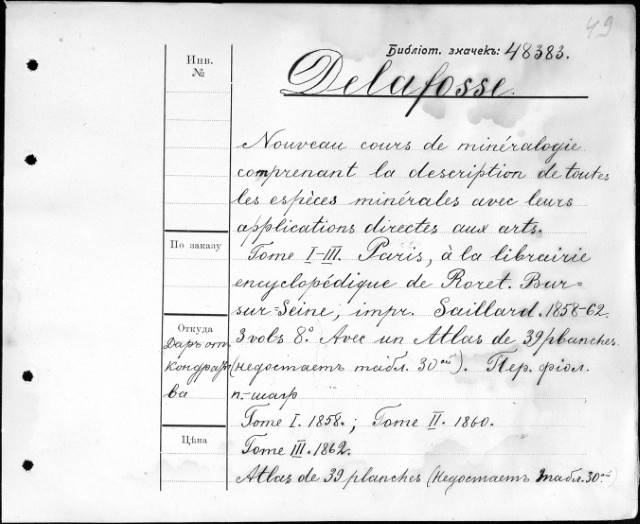 49
Библіот. значекъ: 48383.
Инв.
№
Delafosse.
Nouveau cours de minéralogie
comprenant la description de toutes
les espèces minérales avec leurs
applications directes aux arts.
По заказу
Tome I-III. Paris, à la librairie
encyclopédique de Roret. Bar=
sur=Seine, impr. Saillard. 1858-62.
Откуда
Даръ отъ
Кондрать
ва
3 vols 8°. Avec un Atlas de 39 planches
(недостаетъ табл. 30ой). Пер. фіол.
п.-шагр
Tome I. 1858.; Tome II. 1860.
Цѣна
Tome III. 1862.
Atlas de 39 planches (недостаетъ табл. 30ой